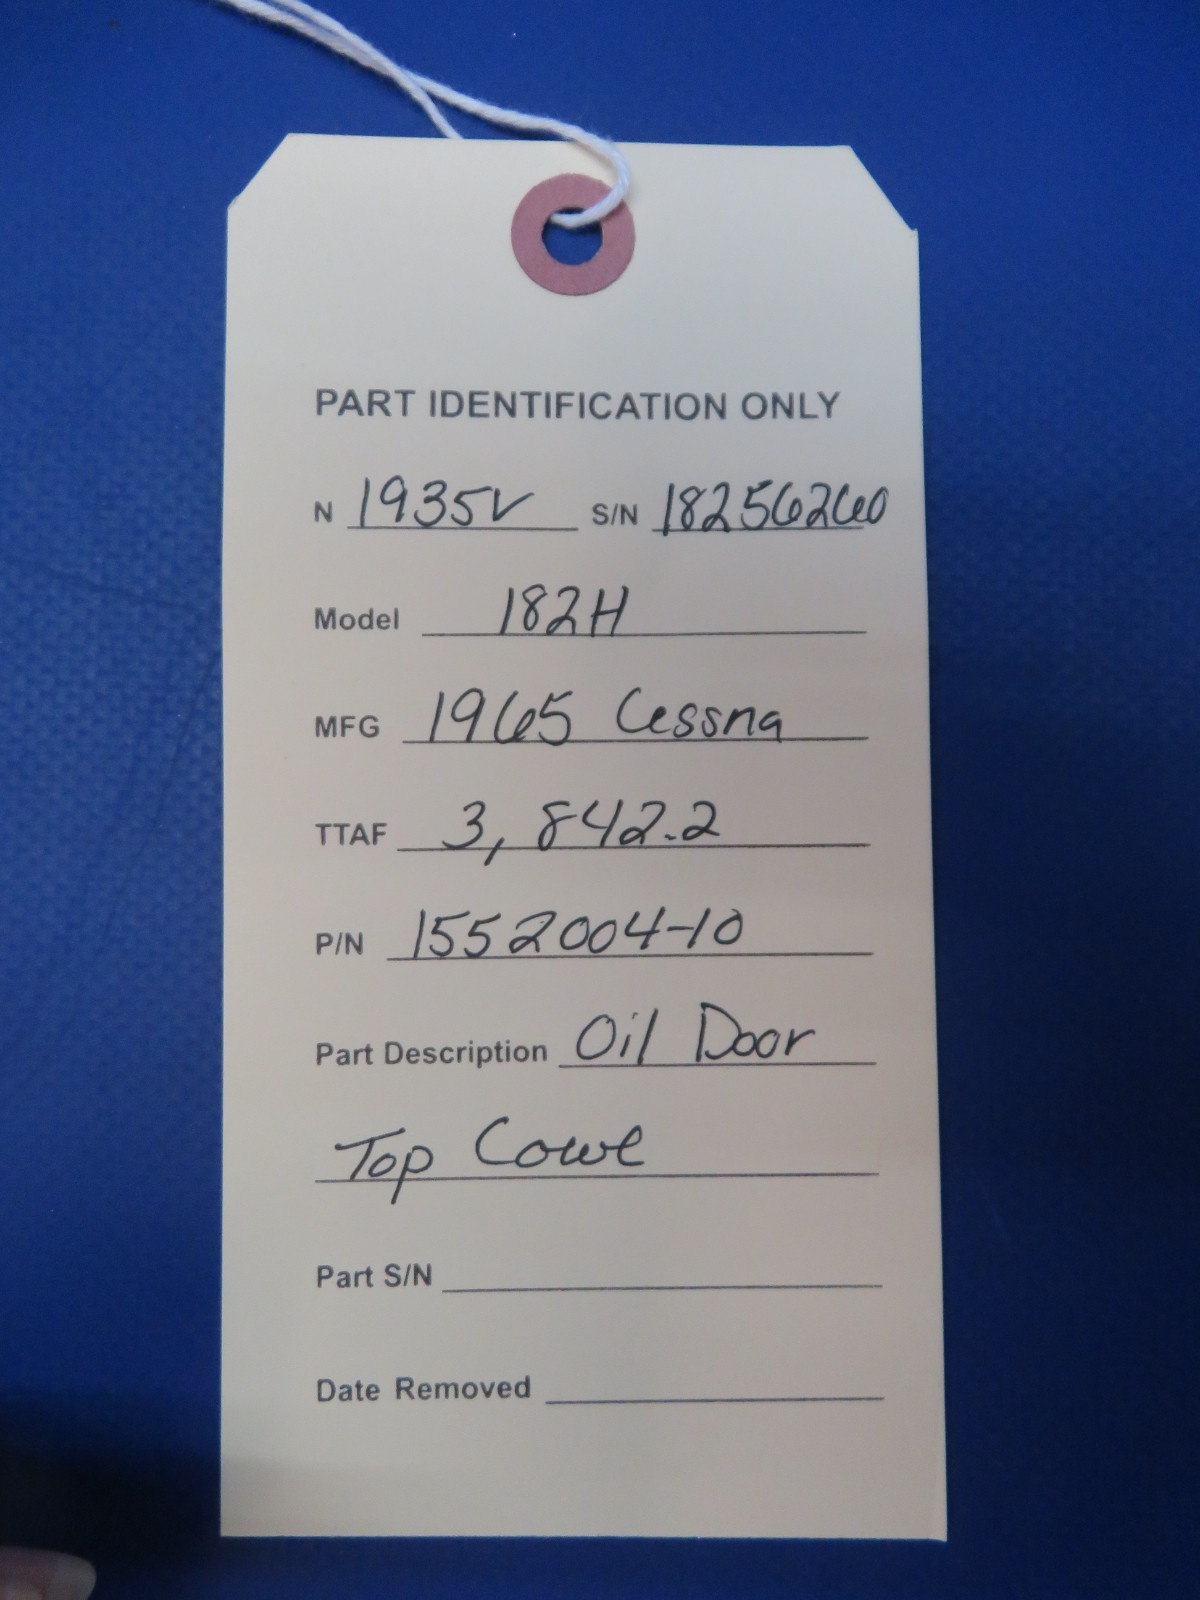 PART IDENTIFICATION ONLY
N 1935V S/N 18256260
Model 182H
MFG 1965 Cessna
TTAF 3,842.2
P/N 1552004-10
Part Description Oil Door
Top Cowl
Part S/N
Date Removed